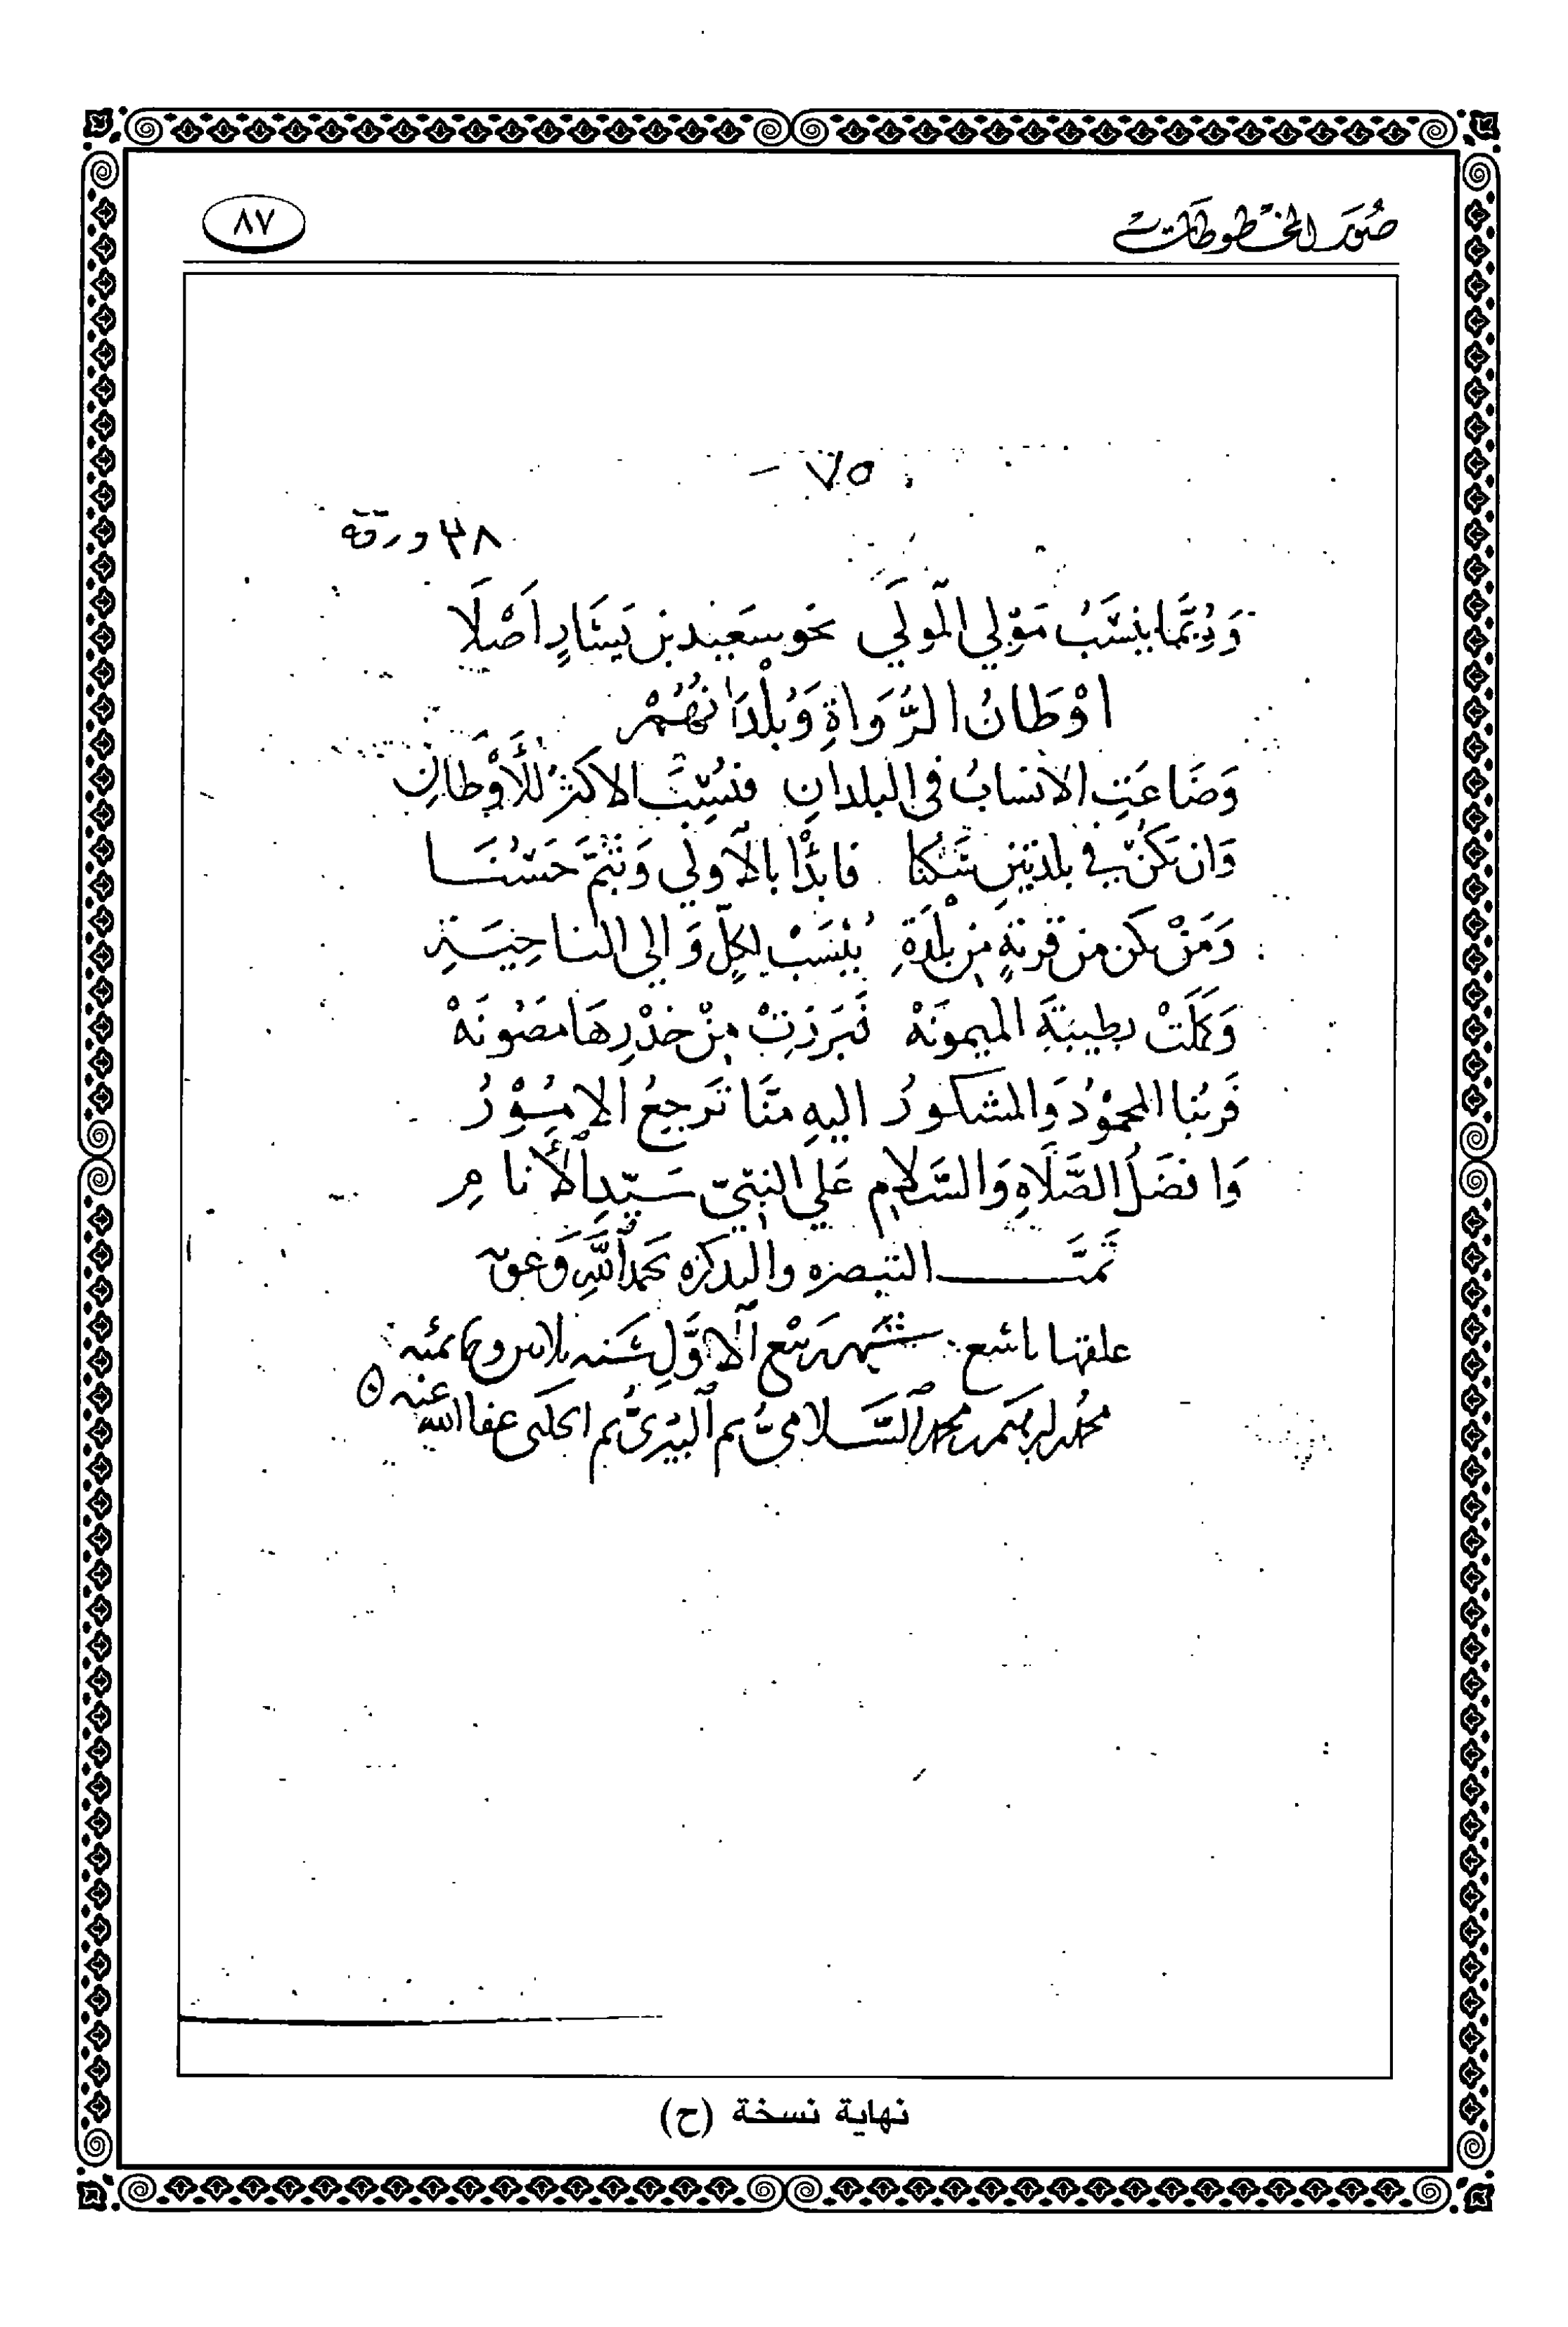 صور المخطوطات
٨٧
٧٥ -
٣٨ ورقة
وَرُبَّمَا يُنسَبُ مَوْلي المَولَي نحو سَعِيد بن يَسَارٍ اَصْلَا
اوْطَانُ الرُّوَاةِ وَبُلْدَانُهُمْ
وَضَاعَتِ الانسابُ في البلدانِ فنُسِبَ الاكثرُ للأَوْطانِ
وَان تكُن في بلدتينِ سَكنا فابدَأ بالاَولي وَبثُمَّ حَسُنَا
وَمَنْ يكن من قريةٍ مِن بلْدَةِ يُنْسَبْ لِكلٍّ وَالى الناحِيَةِ
وَكَمَلَتْ بطَيبَةَ الميمونَهْ فَبَرَزتْ مِنْ خِدْرِهَا مَصُونَهْ
فَربُنا المحمُودُ وَالمشكورُ اليهِ مِنَّا تَرجِعُ الامُوْرُ
وَافضَلُ الصَّلَاةِ وَالسَّلامِ عَلي النبِيّ سَيّدِ الأَنامِ
تمَّت التبصره والتذكره بحمد اللهِ وَعونه
علقها تاسع شهر رَبيْع الاوَّلِ سَنه ثلاثين وثمانمئه
محمدُ محمد السَّلاميُّ ثم البيريُّ ثم الحلبى عفا الله عنه
نهاية نسخة (ح)